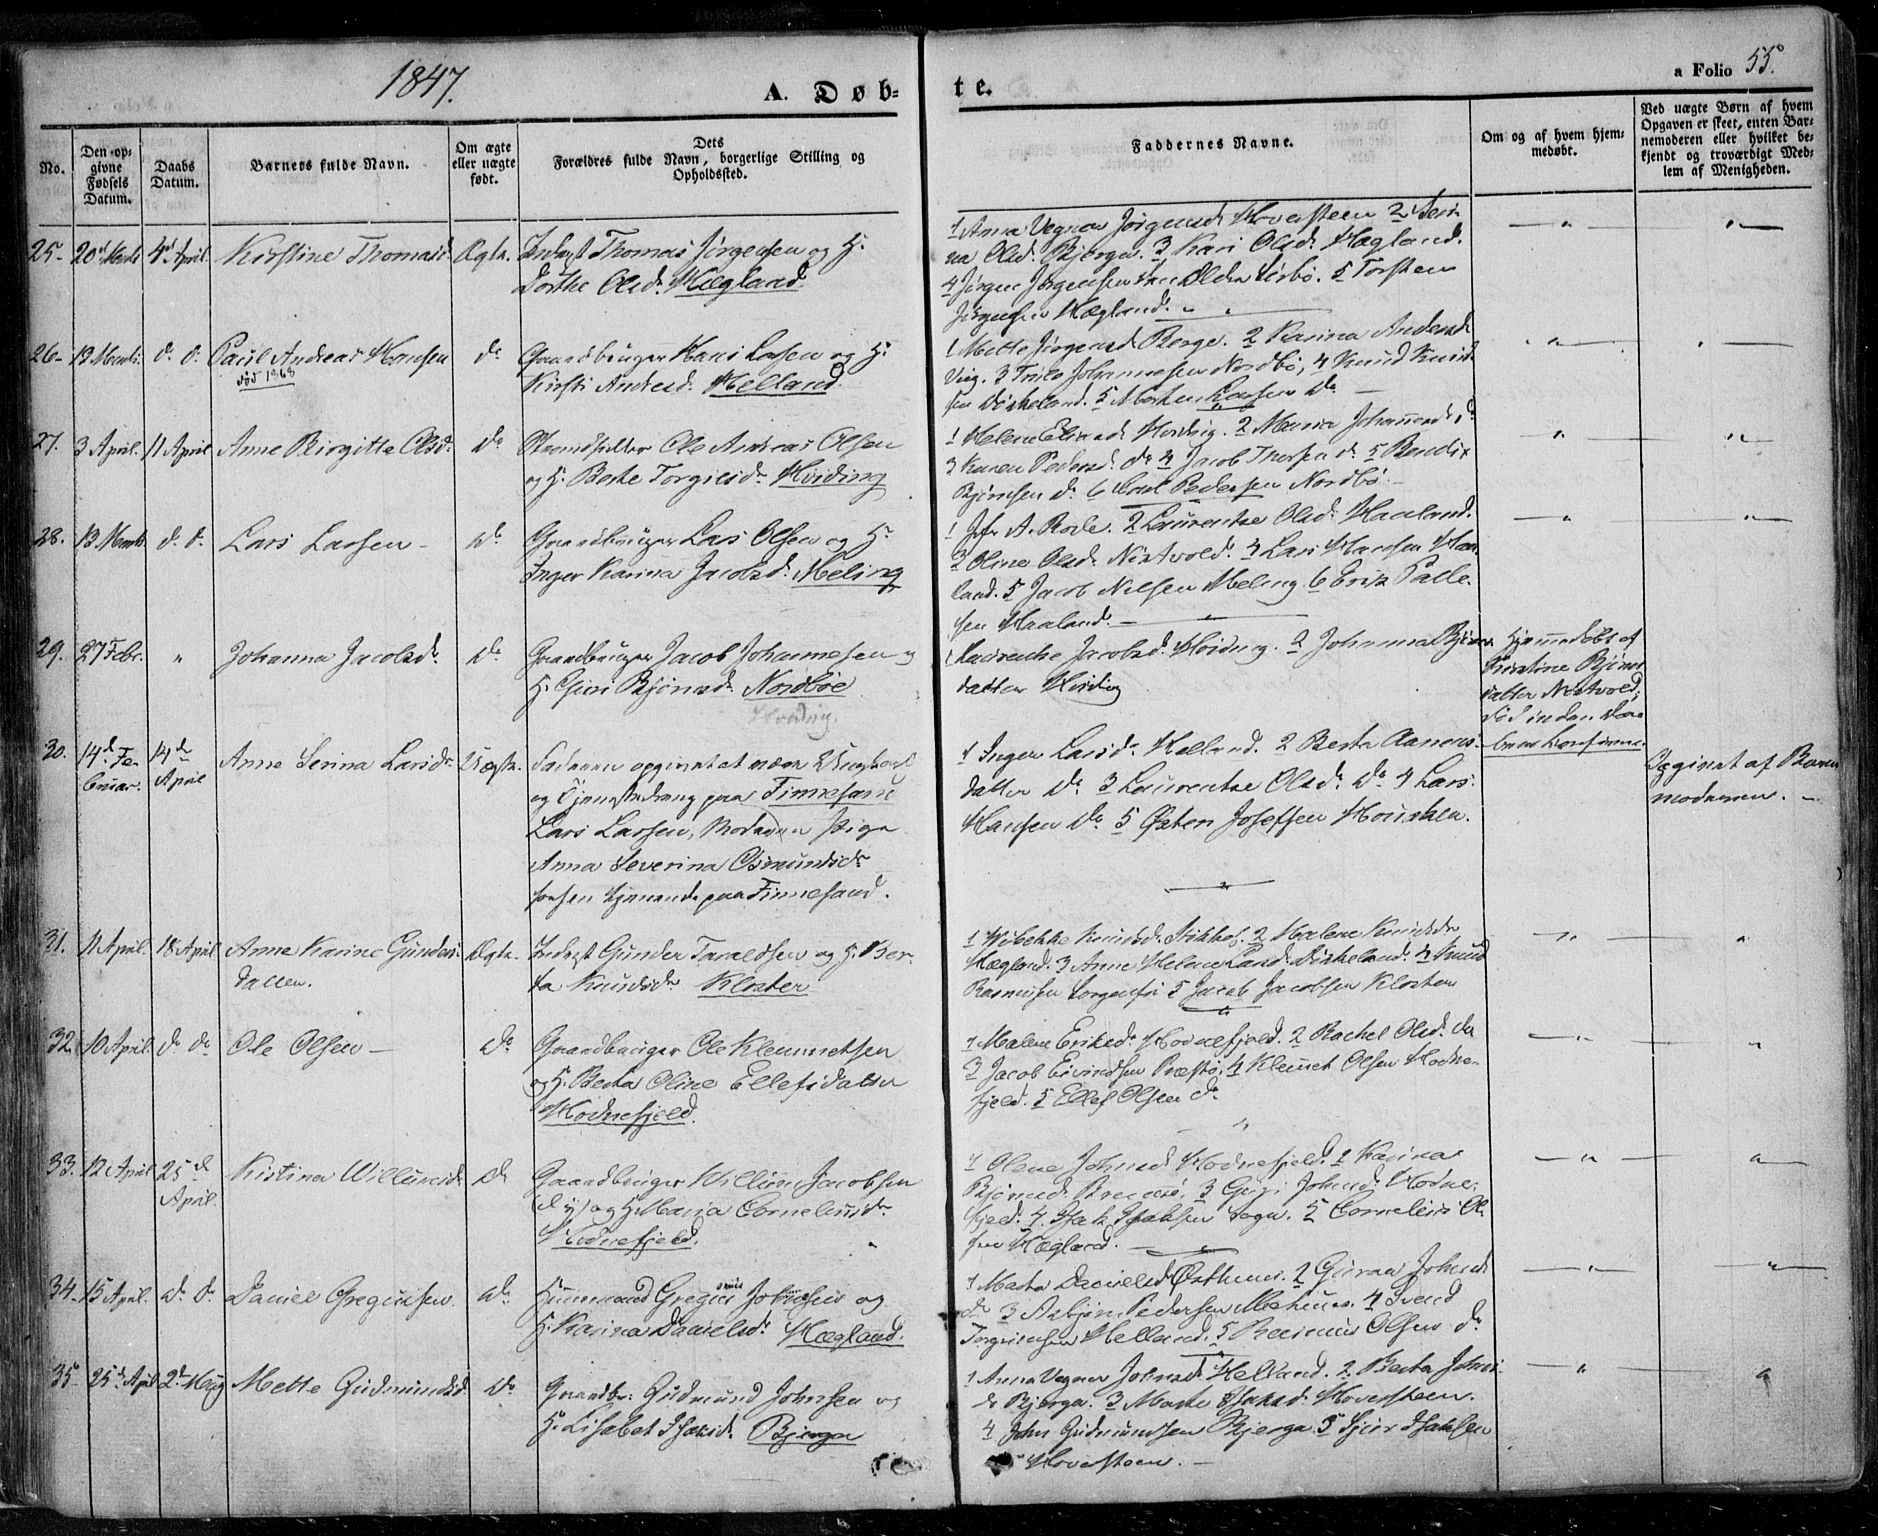 1847.
A. Døb-
te.
a Folio 55.
No.
Den op-
givne
Fødsels
Datum.
Daabs
Datum.
Barnets fulde Navn.
Om ægte
eller uægte
født.
Dets
Forældres fulde Navn, borgerlige Stilling og
Opholdssted.
Faddernes Navne.
Om og af hvem hjem-
medøbt.
Ved uægte Børn af hvem
Opgaven er skeet, enten Bar-
nemoderen eller hvilket be-
kjendt og troværdigt Med-
lem af Menigheden.
25. 20d Marts 4d April Kirstine Thomasd. Ægte. Inderst Thomas Jørgensen og H.
Dorthe Olsd. Hægland.
1 Anna Vegner Jørgensd. Hoversteen 2
na Olsd. Bjerga. 3 Kari Olsd. Hægland.
4 Jørgen Jørgensen 5 Torsten
Jørgensen Hægland.
26. 13 Marts. d. d. Paul Andreas Hansen do Gaardbruger Hans Larsen og H.
død 1868
Kirsti Andersd. Helland.
1 Mette Jørgensd. Berge. 2 Karina Andersd.
Viig. 3 Johannesen Nordbö, 4 Knud Knud-
sen Dirkeland. 5 Morten Larsen do
27. 3 April. 11 April Anne Birgitte Olsd. do Strandsidder Ole Andreas Olsen
og H. Berte Torgiersd. Hviding
1 Helene Hviding. 2 Maria Johannesd. do
3 Karen Pedersd. do 4 Jacob Thorsen do 5 Bendix
Bjørnsen do 6 Pedersen Nordbö.
28. 13 Marts. d. d. Lars Larsen do Gaardbruger Lars Olsen og H.
Inger Karina Jacobsd. Meling
1 Jfr A. Rode. 2 Laurentze Olsd. Haaland.
3 Oline Olsd. Nistvold. 4 Lars Hansen Haa-
land. 5 Jacob Nilsen Meling. 6 Erik Palle-
sen Haaland.
29. 27 Febr. " Johanna Jacobsd. do Gaardbruger Jacob Johannesen og
H. Bjørnsd. Nordböe
Hviding.
1 Laurentze Jacobsd. Hviding. 2 Johanna Bjørns-
datter Hviding
Hjemmedöbt af
Kirstine Bjørns-
datter Nistvold;
30. 14d Fe-
bruar. 14d
April Anne Serina Larsdr. Uægte. Faderen opgivet at være Ungkarl
og Tjenestedreng paa Finnesand
Lars Larsen, Moderen Pige
Anna Severina Osmundsdr.
tjenende paa Finnesand.
1 Inger Larsdr. Helland. 2 Berta Aanens-
datter do 3 Laurentze Olsd. do 4 Lars
Hansen do 5 Østen Josefsen Houskken.
Opgivet af Barne-
moderen.
31. 11 April. 18 April Anne Karine Gunders-
datter. Ægte. Inderst Gunder Taraldsen og H. Ber-
ta Knudsdr. Kloster
1 Wibekke Knudsd. 2 Malene Knudsdr
Hægland. 3 Anne Helene Dirkeland. 4 Knud
Rasmusen 5 Jacob Jacobsen Kloster
32. 10 April. d. do Ole Olsen do Gaardbruger Ole Klemmetsen
og H. Berta Oline Ellefsdatter
Hodnefjeld.
1 Malene Eriksd. Hodnefjeld. 2 Rachel Olsd. do
3 Jacob Eivindsen Præstö, 4 Klemet Olsen Hodne-
fjeld. 5 Ellef Olsen do
33. 12 April 25d
April. Kristina Willumsd. do Gaardbruger Willum Jacobsen
og H. Maria Cornelius dr.
Hodnefjeld.
1 Olene Johnsd. Hodnefjeld. 2 Karina
Bjørnsd. 3 Johnsd. Hodne-
fjeld. 4. Isak Isaksen Sogn. 5 Cornelius Ol-
sen Hægland.
34. 15 April. d. d. Daniel Gregersen do Huusmand Johnsen og
H. Karina Danielsd. Hægland.
1 Marta Danielsd. Østhuus. 2 Guroa Johnsd.
do 3 Asbjørn Pedersen 4 Svend
Torgrimsen Helland. 5 Rasmus Olsen do
35. 25d April 2d May Mette Gudmundsd. do Gaardbr: Gudmund Johnsen og
H. Lisabet Isaksd. Bjerga
1 Anna Vegner Johnsd. Helland. 2 Berta Johns-
d. Bjerga. 3 Marte Isaksd. Hoversteen.
4 John Gudmundsen Bjerga 5 Isaksen
Hoversteen.